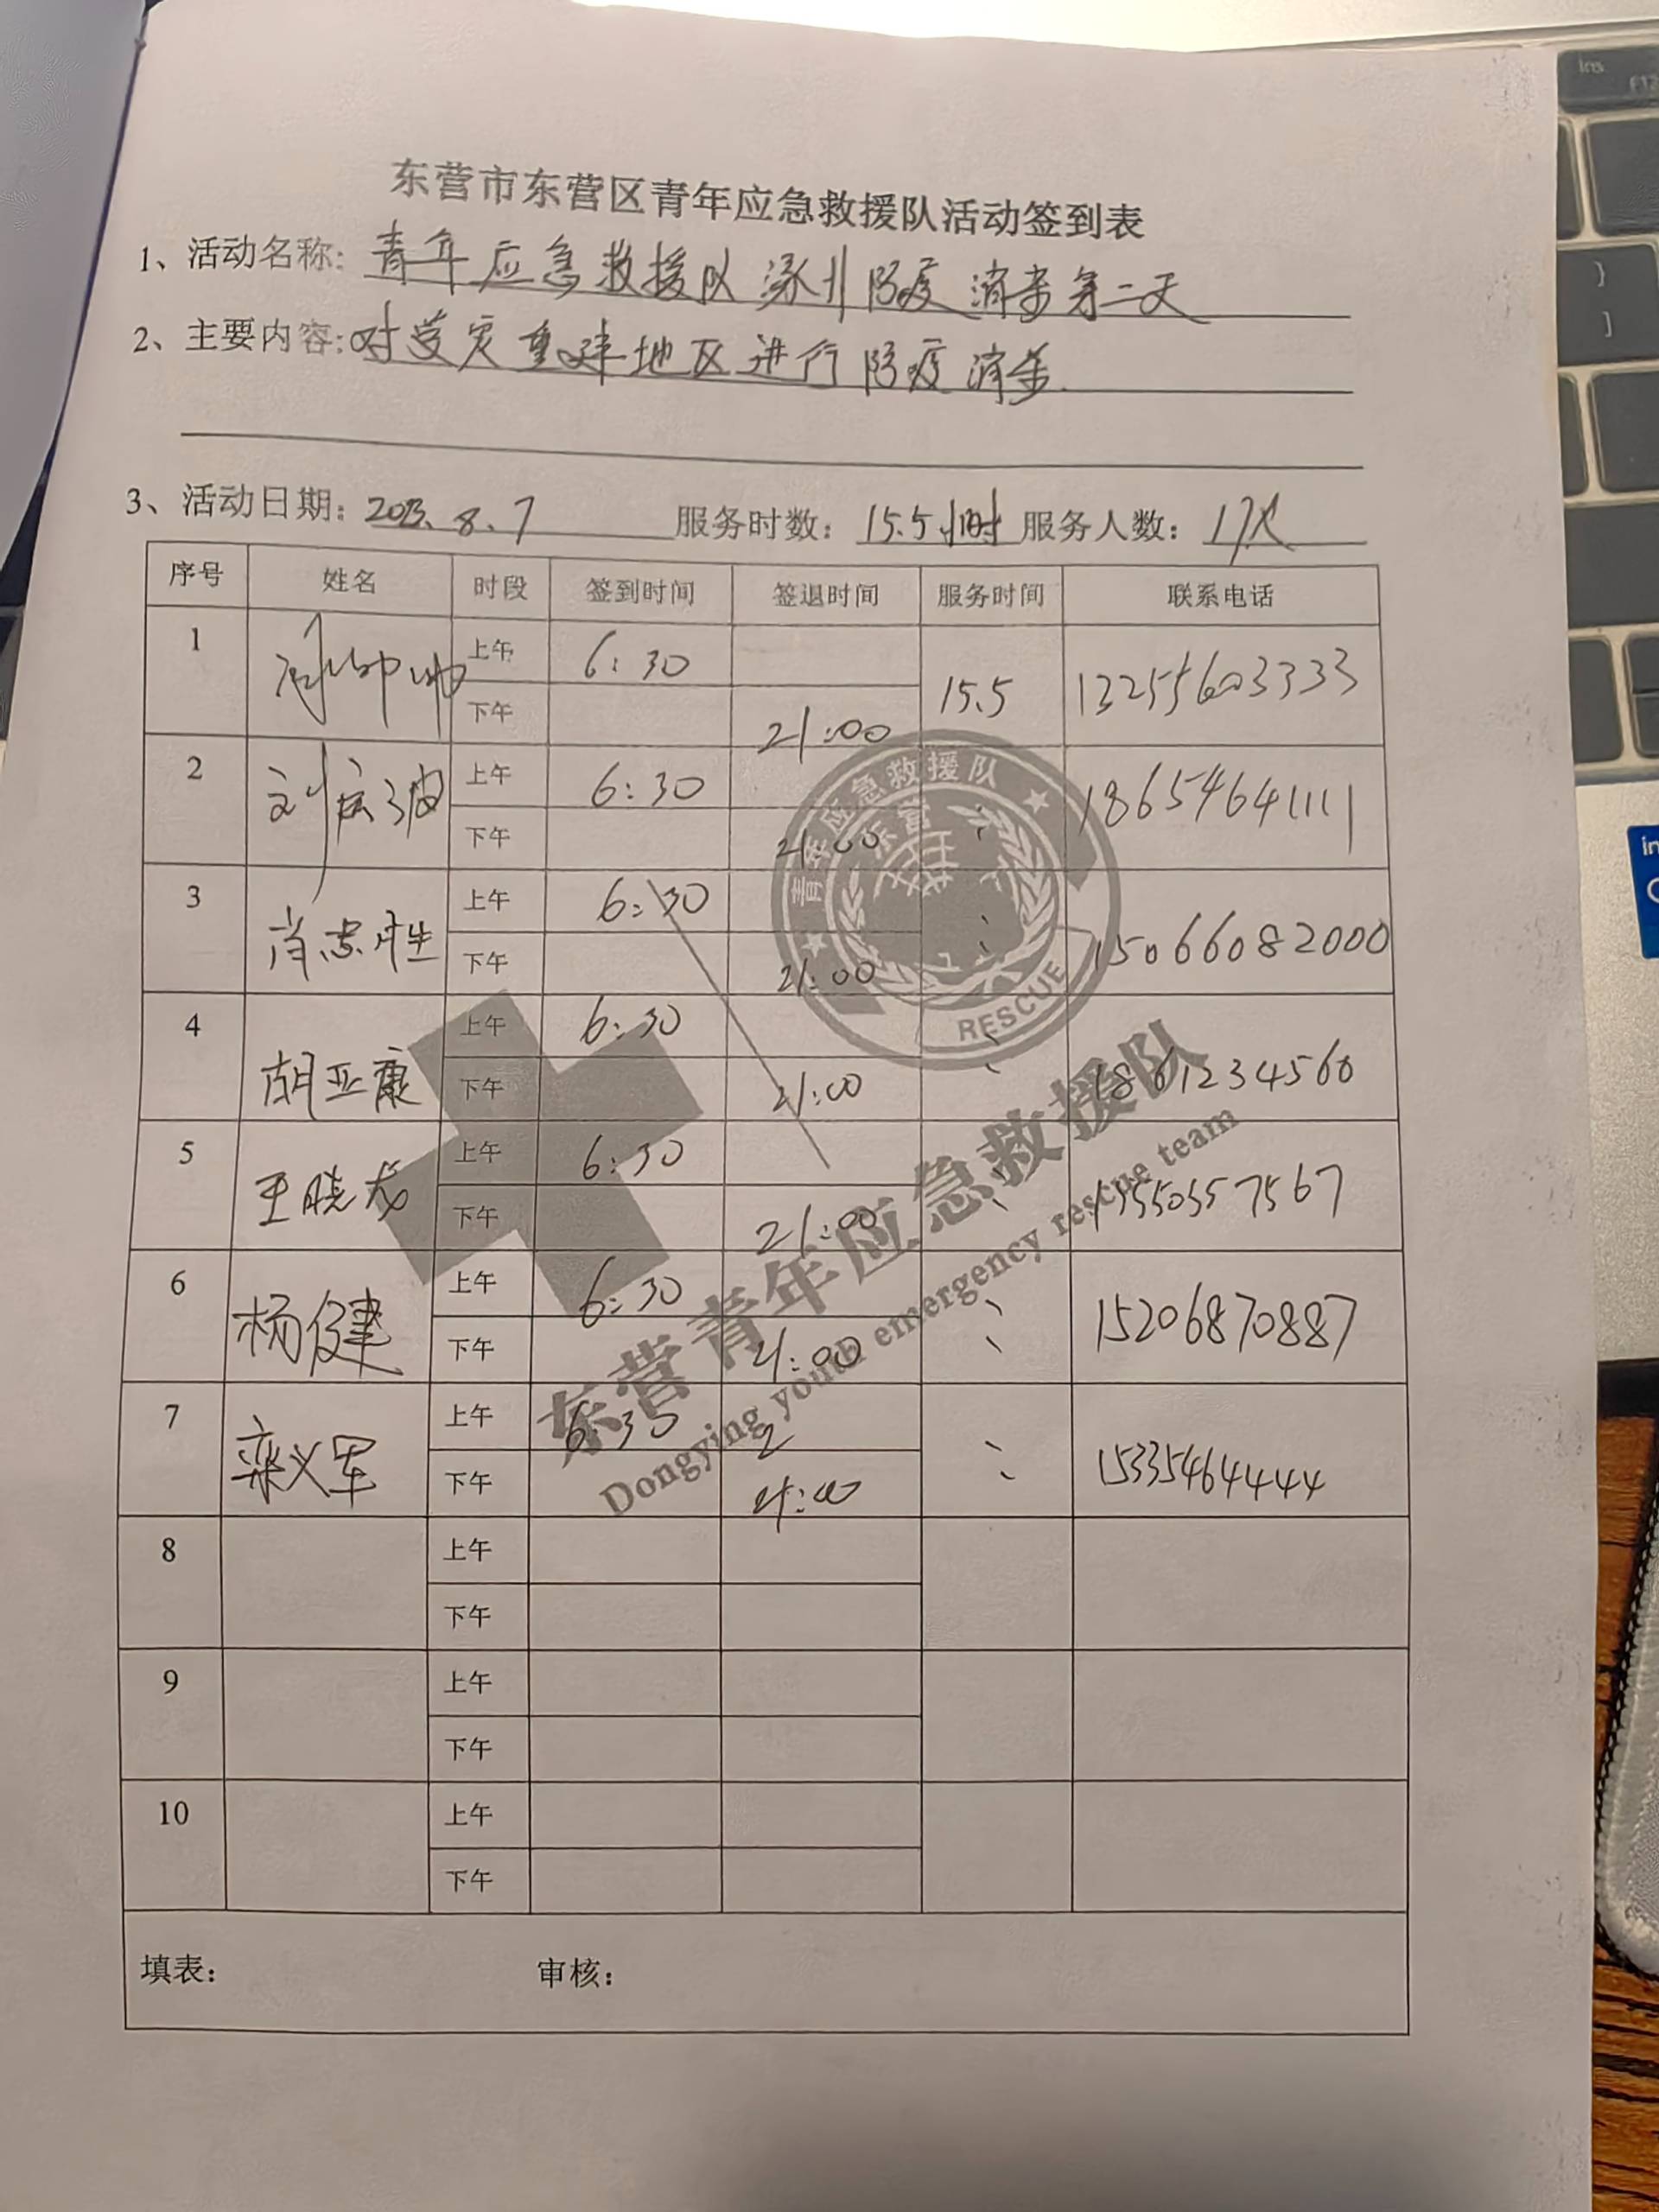 东营市东营区青年应急救援队活动签到表
1、活动名称: 青年应急救援队涿州防疫消杀第二天
2、主要内容: 对受灾重建地区进行防疫消杀.
3、活动日期: 2023.8.7 服务时数: 15.5小时 服务人数: 17人
序号 姓名 时段 签到时间 签退时间 服务时间 联系电话
1 上午 6:30 15.5 13255603333
下午 21:00
2 刘宏波 上午 6:30 18654641111
下午 21:00
3 肖志胜 上午 6:30 15066082000
下午 21:00
4 胡亚康 上午 6:30 1861234560
下午 21:00
5 王晓龙 上午 6:30
下午 21:00
6 杨健 上午 6:30 15206870887
下午 21:00
7 栾义军 上午 6:30 2 15335464444
下午 21:00
8 上午
下午
9 上午
下午
10 上午
下午
填表: 审核:
青年应急救援队
东营
RESCUE
东营青年应急救援队
Dongying youth emergency rescue team
Ins
F12
}
]
in